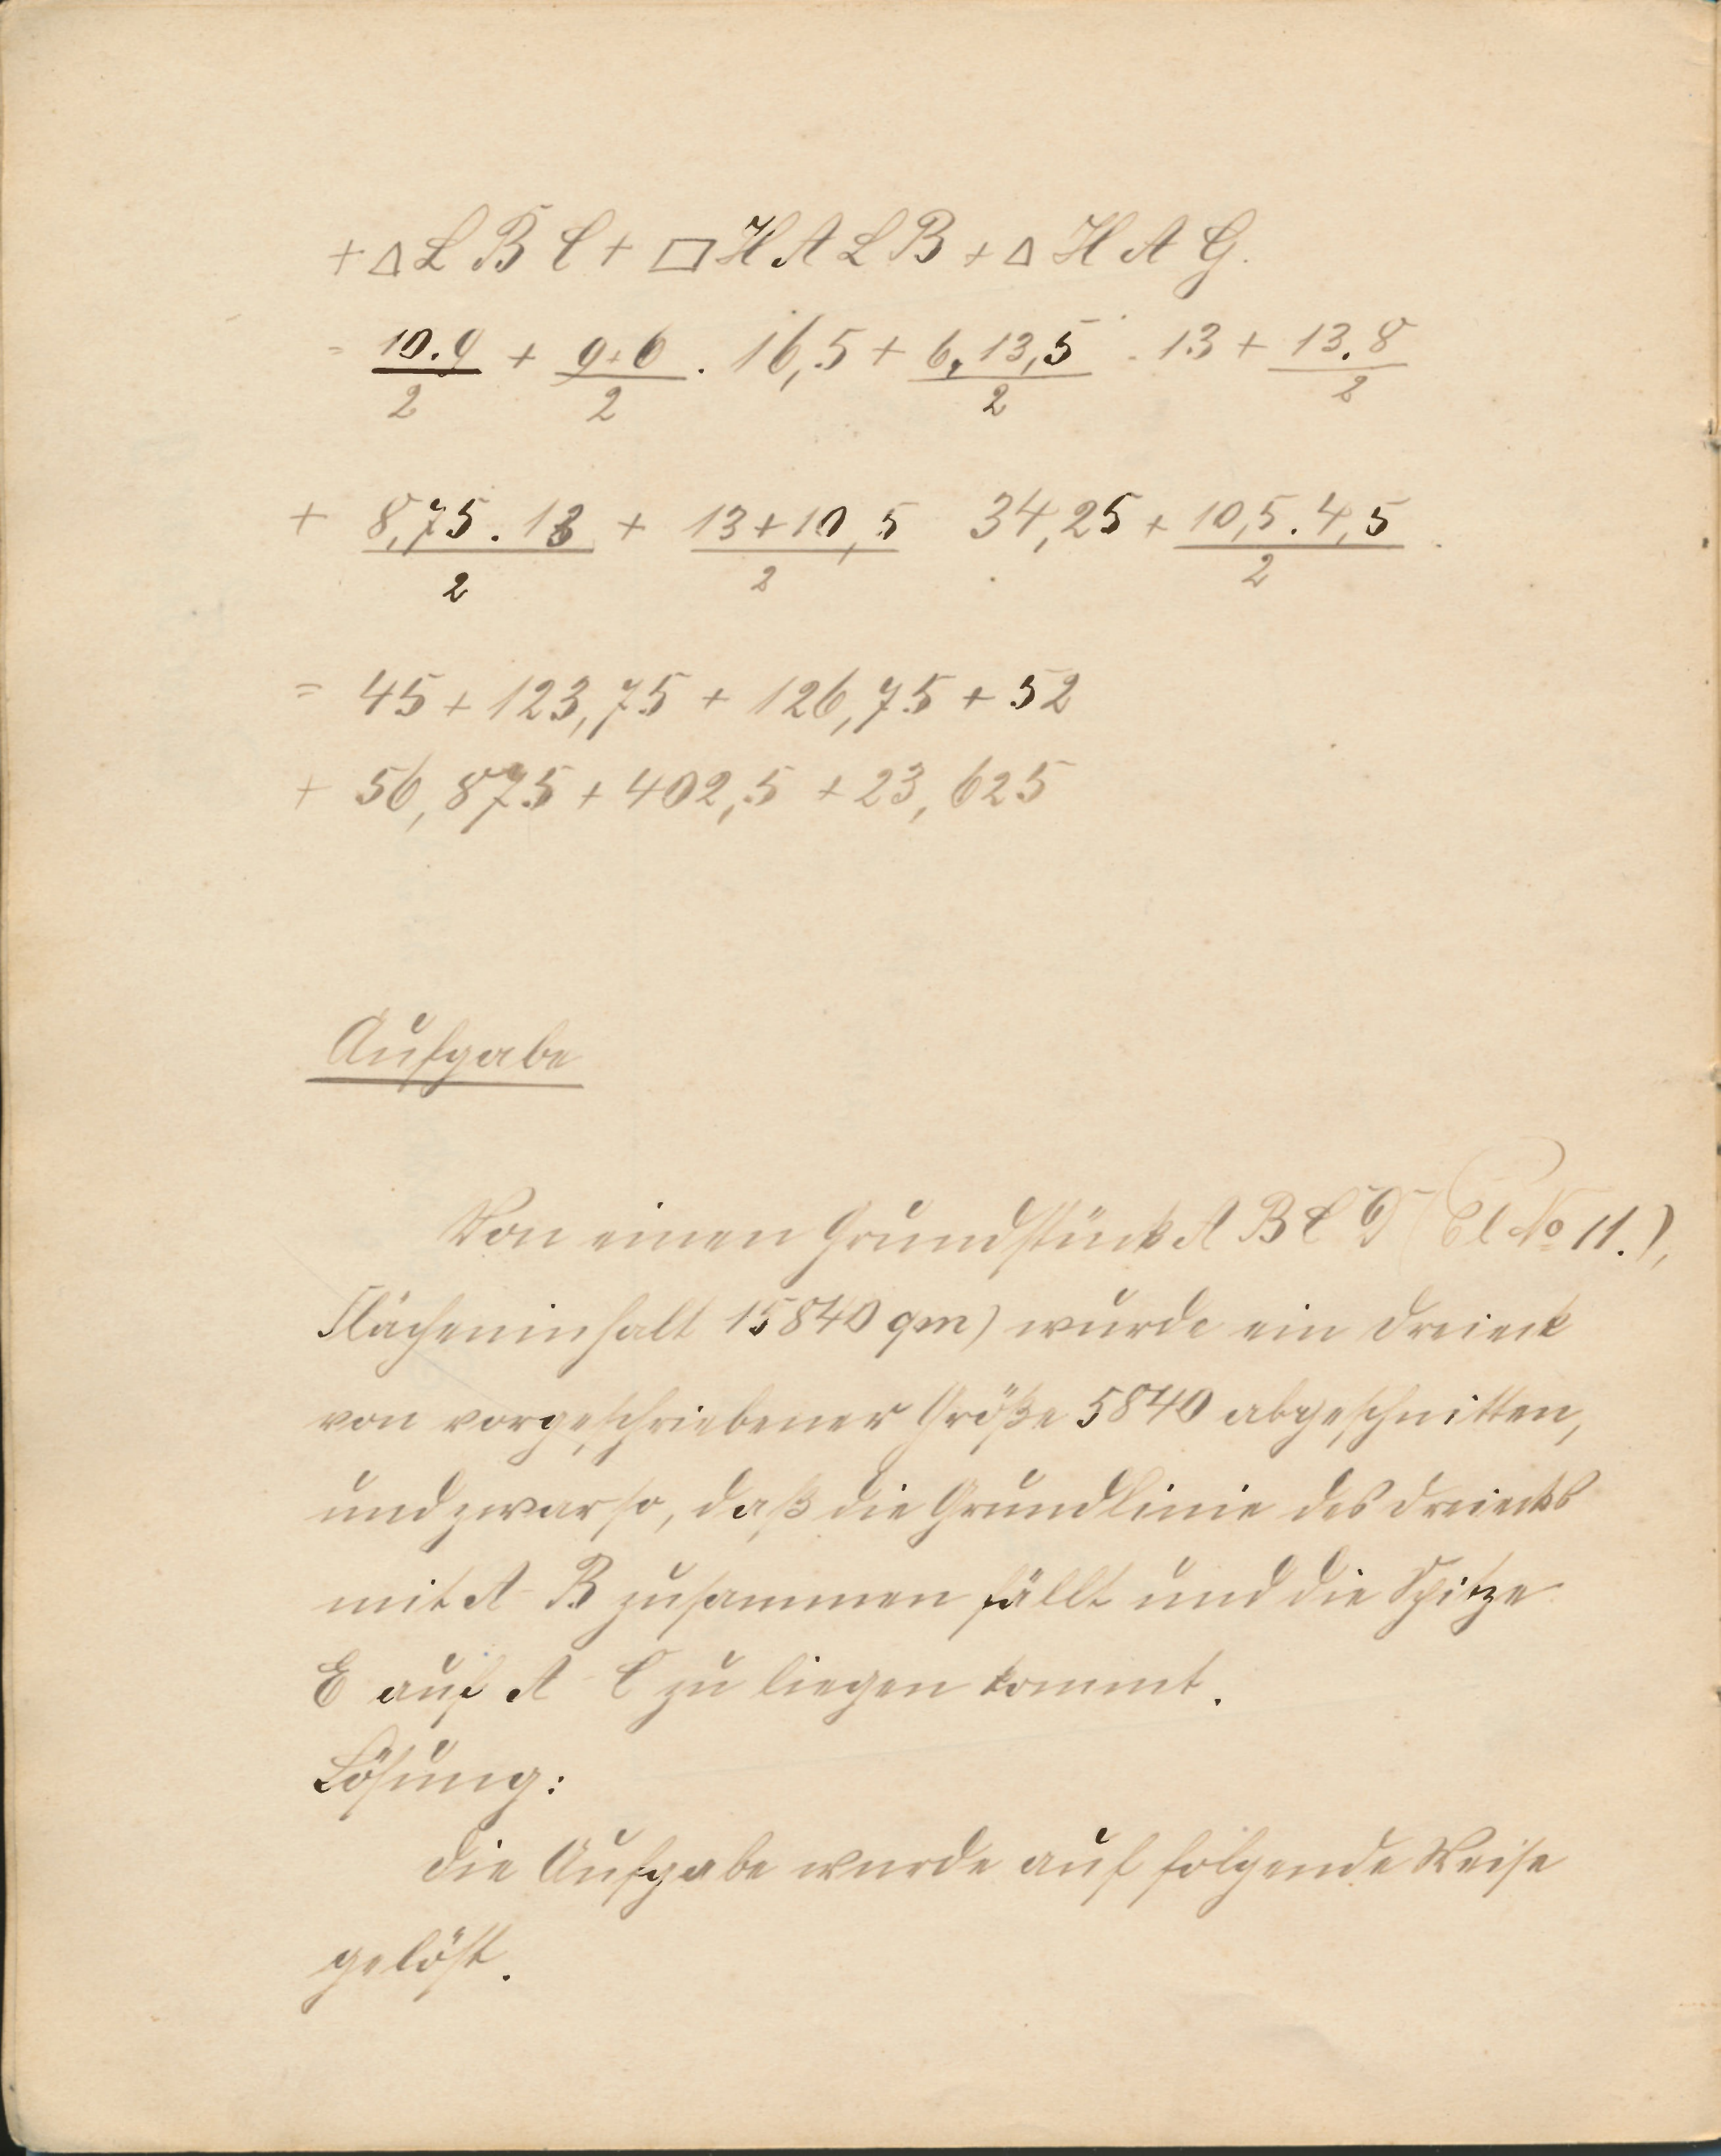 + △ L B C + ▱ H A L B + △ H A G.
= 10.9/2 + 9+6/2 . 16,5 + 6,13,5/2 . 13 + 13.8/2
+ 8,75.13/2 + 13+10,5/2 34,25 + 10,5.4,5/2 .
= 45 + 123,75 + 126,75 + 52
+ 56,875 + 402,5 + 23,625
Aufgabe
Von einen Grundstück A B C D (Bl No 11.),
Flächeninhalt 15840 qm) wurde ein Dreieck
von vorgeschriebener Größe 5840 abgeschnitten,
und zwar so, daß die Grundlinie des Dreiecks
mit A - B zusammen fällt und die Spitze
E auf A - C zu liegen kommt.
Lösung:
Die Aufgabe wurde auf folgende Weise
gelöst.